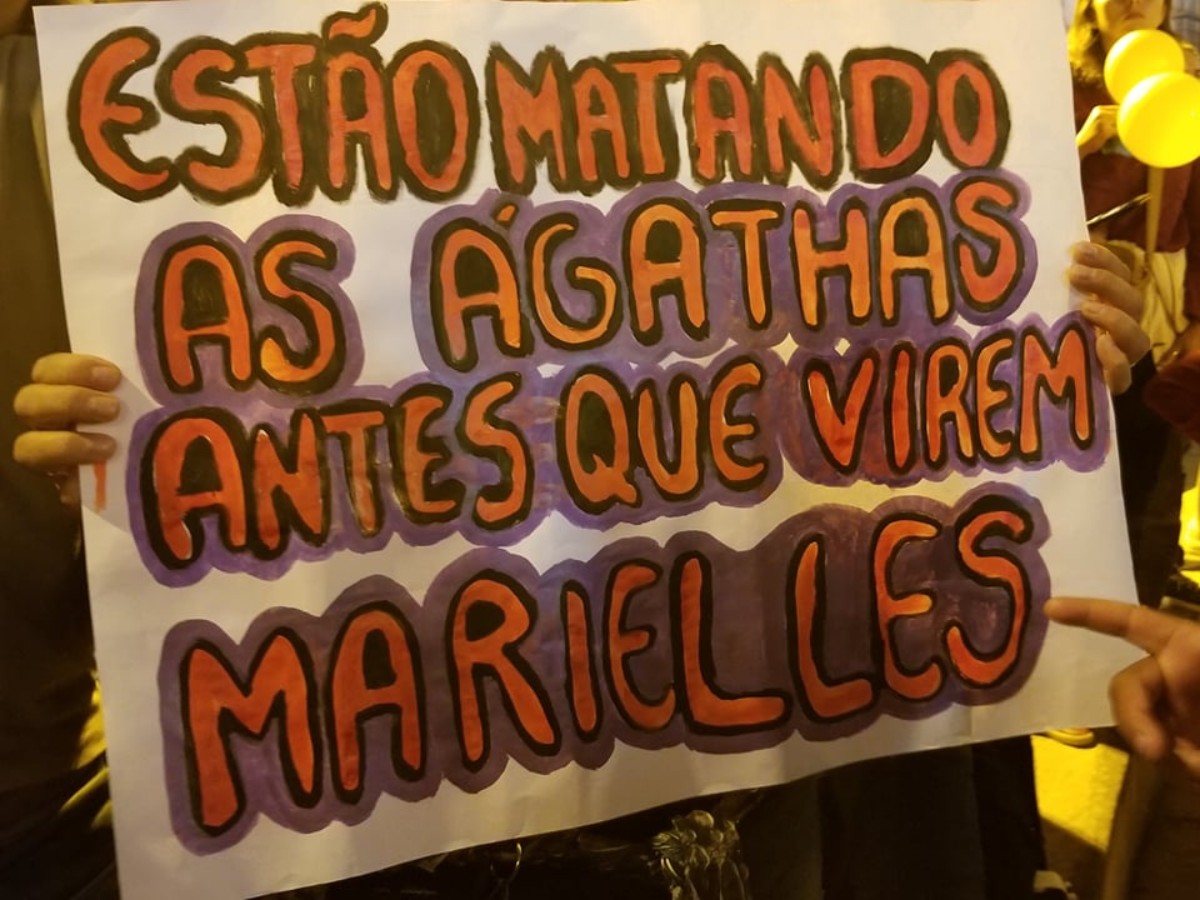 ESTÃO MATANDO
AS ÁGATHAS
ANTES QUE VIREM
MARIELLES